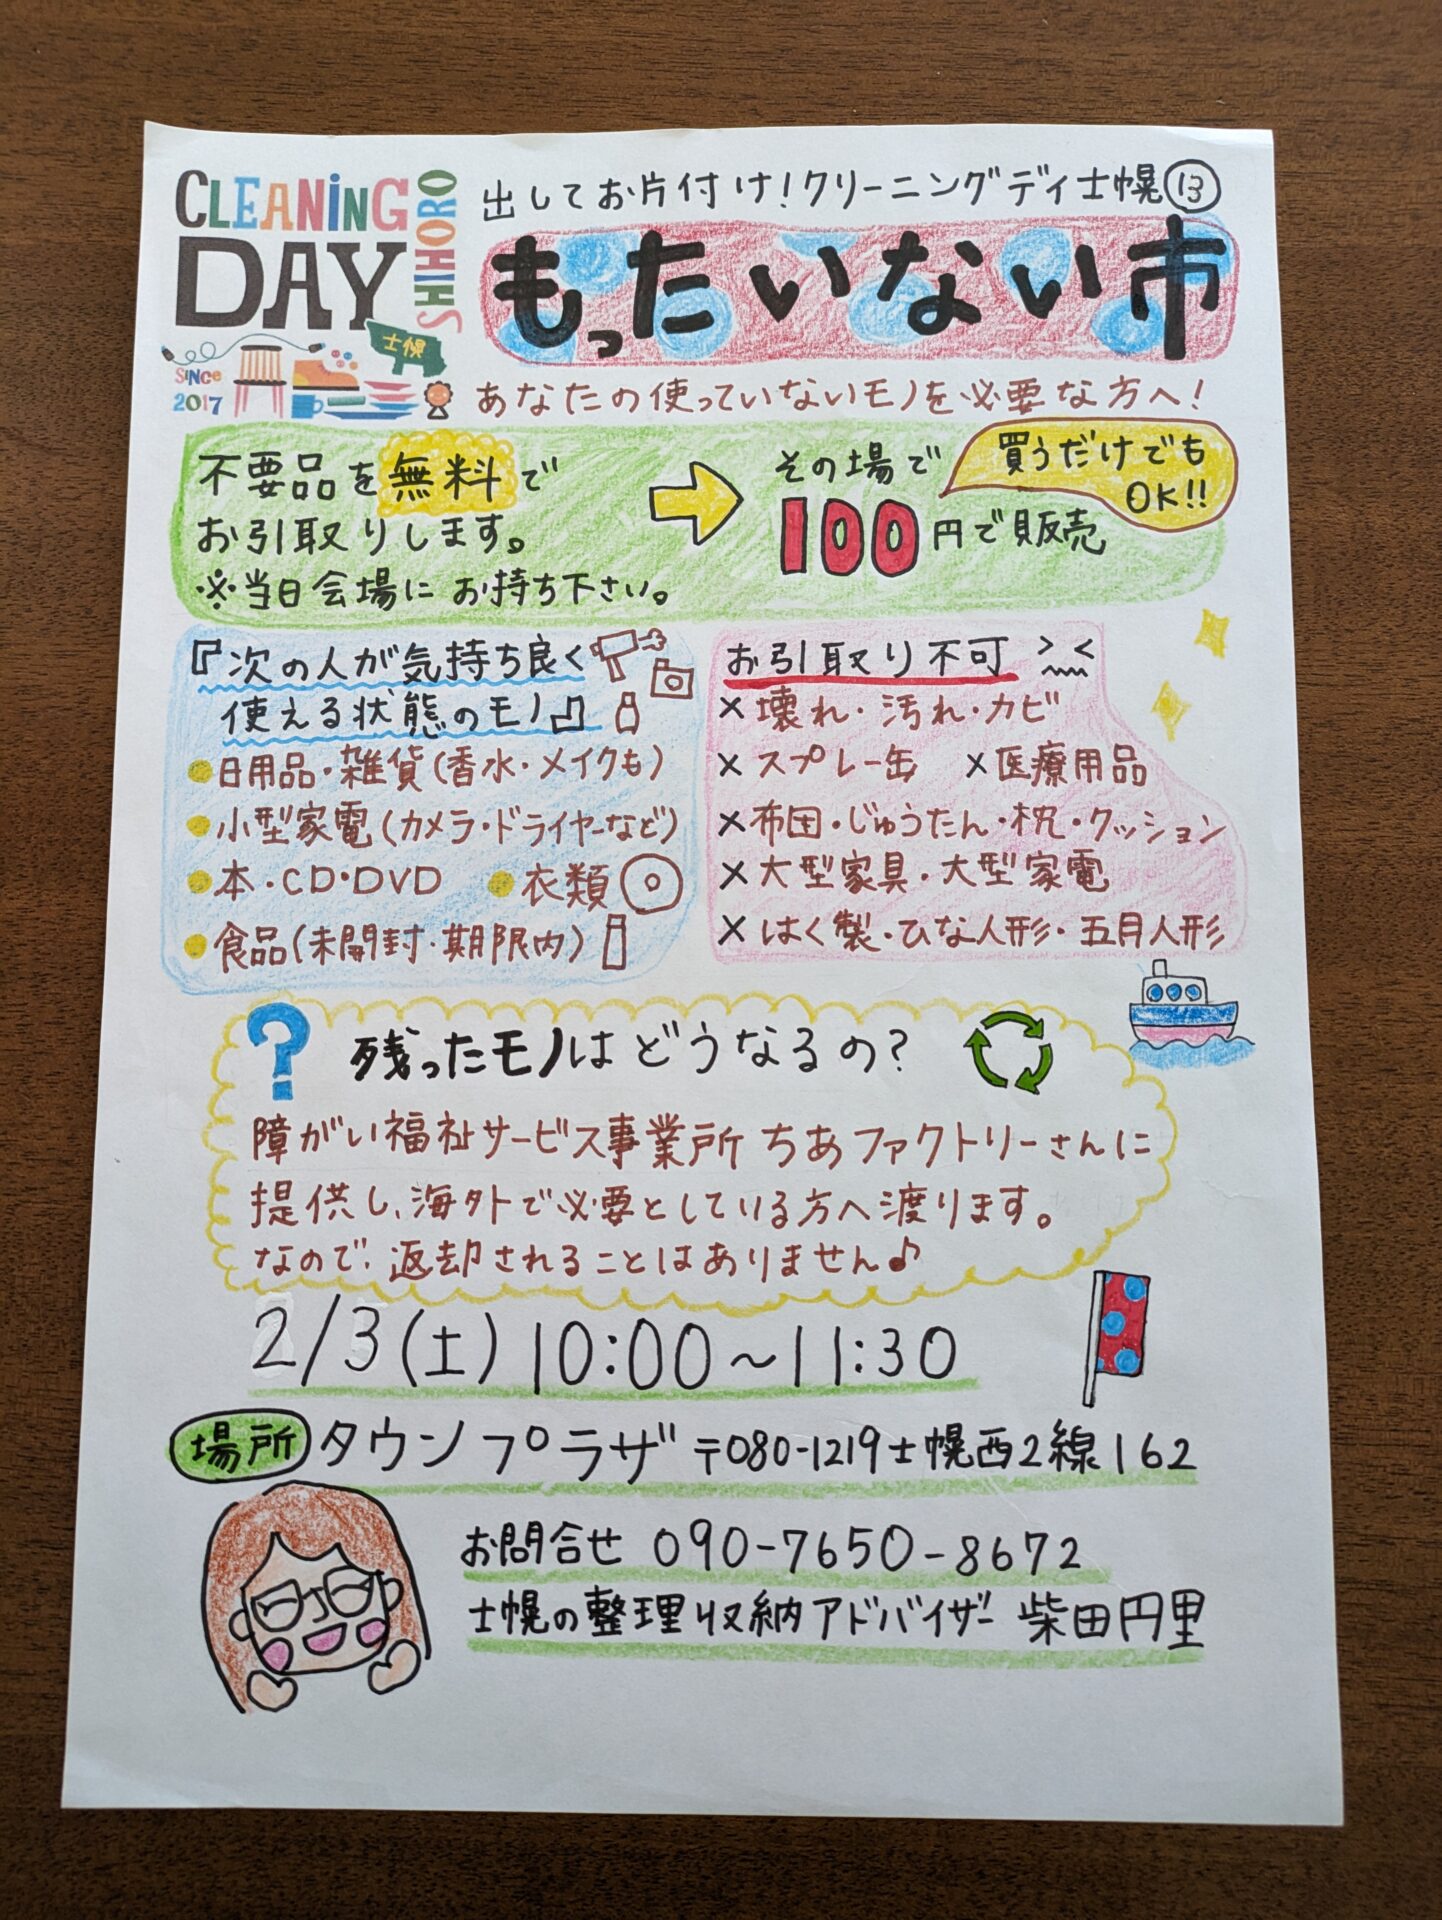 CLEANING
DAY
SHIHORO
士幌
SINCE
2017
出してお片付け!クリーニングディ士幌⑬
もったいない市
あなたの使っていないモノを必要な方へ!
不要品を無料で
お引取りします。
※当日会場にお持ち下さい。
その場で
100円で販売
買うだけでも
OK!!
『次の人が気持ち良く
使える状態のモノ』
●日用品・雑貨(香水・メイクも)
●小型家電(カメラ・ドライヤーなど)
●本・CD・DVD ●衣類
●食品(未開封・期限内)
お引取り不可
×壊れ・汚れ・カビ
×スプレー缶 ×医療用品
×布団・じゅうたん・枕・クッション
×大型家具・大型家電
×はく製・ひな人形・五月人形
?残ったモノはどうなるの?
障がい福祉サービス事業所ちあファクトリーさんに
提供し、海外で必要としている方へ渡ります。
なので、返却されることはありません♪
2/3(土)10:00~11:30
場所 タウンプラザ 〒080-1219士幌西2線162
お問合せ 090-7650-8672
士幌の整理収納アドバイザー 柴田円里